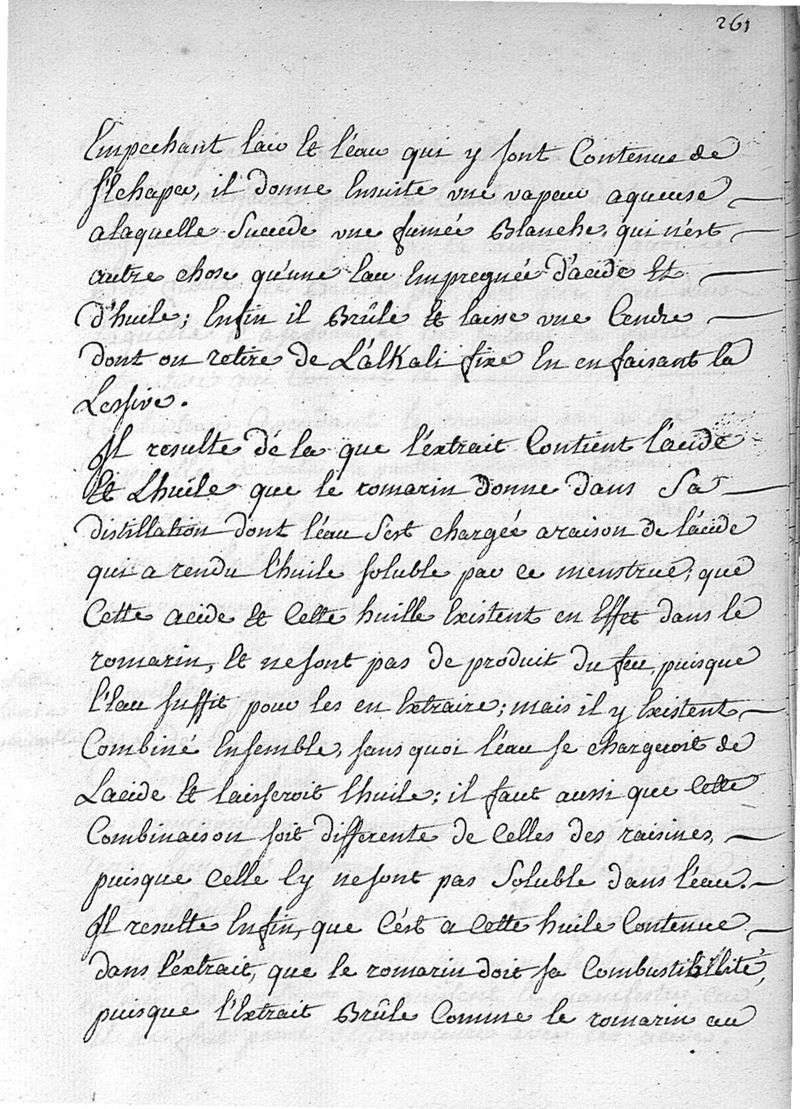 261
Empechant l'air Et l'éau qui y sont Contenue de
s'Echaper, il donne Ensuite une vapeur aqueuse
alaquelle Succede une fumée Blanche, qui n'est
autre chose qu'une Eau Empregnée d'acide Et
d'huile; Enfin il Brûle Et laisse une Cendre
dont on retire de L'alkali fixe En en faisant la
Lessive.
Il resulte dé la que l'éxtrait Contient l'acide
Et L'huile que le romarin Donne dans Sa
distillation dont l'éau s'est chargée a raison de l'ácide
qui a rendu l'huile soluble par ce menstrue; que
Cette acide Et Cette huille Existent en Effet dans le
romarin, Et ne sont pas de produit du feu, puisque
l'Eau suffit pour les en Extraire; mais il y Existent
Combiné Ensemble, sans quoi l'éau se chargeroit de
L'acide Et laisseroit l'huile; il faut aussi que Cette
Combinaison soit differente de Celles des raisines,
puisque Celle Cy ne sont pas Soluble dans l'éau.
Il resulte Enfin, que C'ést a Cette huile Contenue
dans l'éxtrait, que le romarin doit sa Combustibilité,
puisque l'Extrait Brûle Comme le romarin au